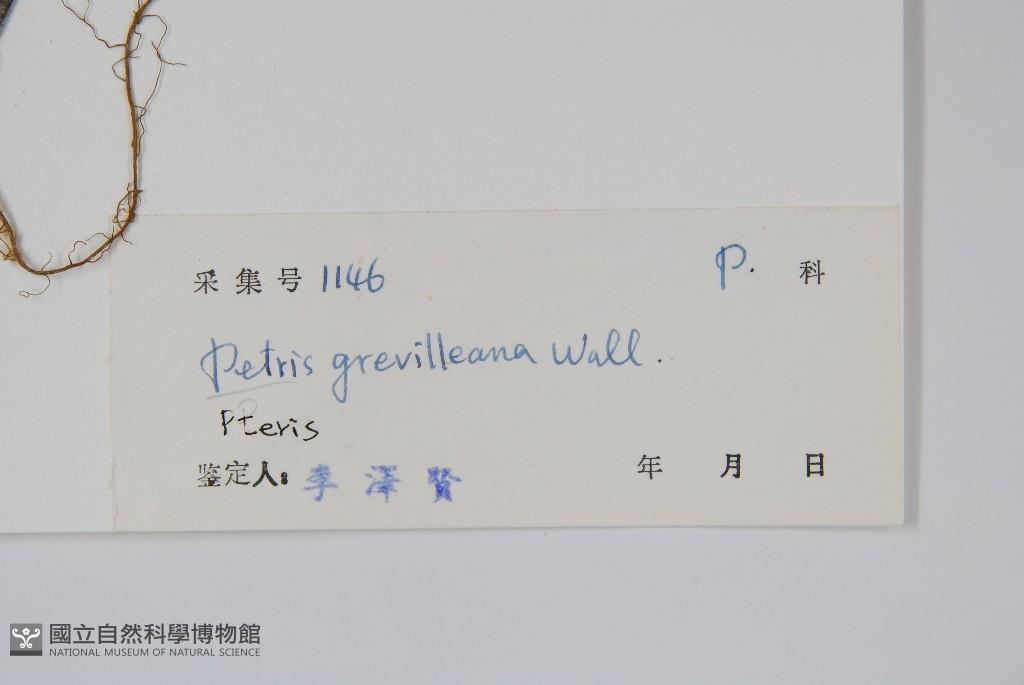 采集号 1146 P. 科
Petris grevilleana Wall.
Pteris
鉴定人: 李澤賢 年 月 日
國立自然科學博物館
NATIONAL MUSEUM OF NATURAL SCIENCE